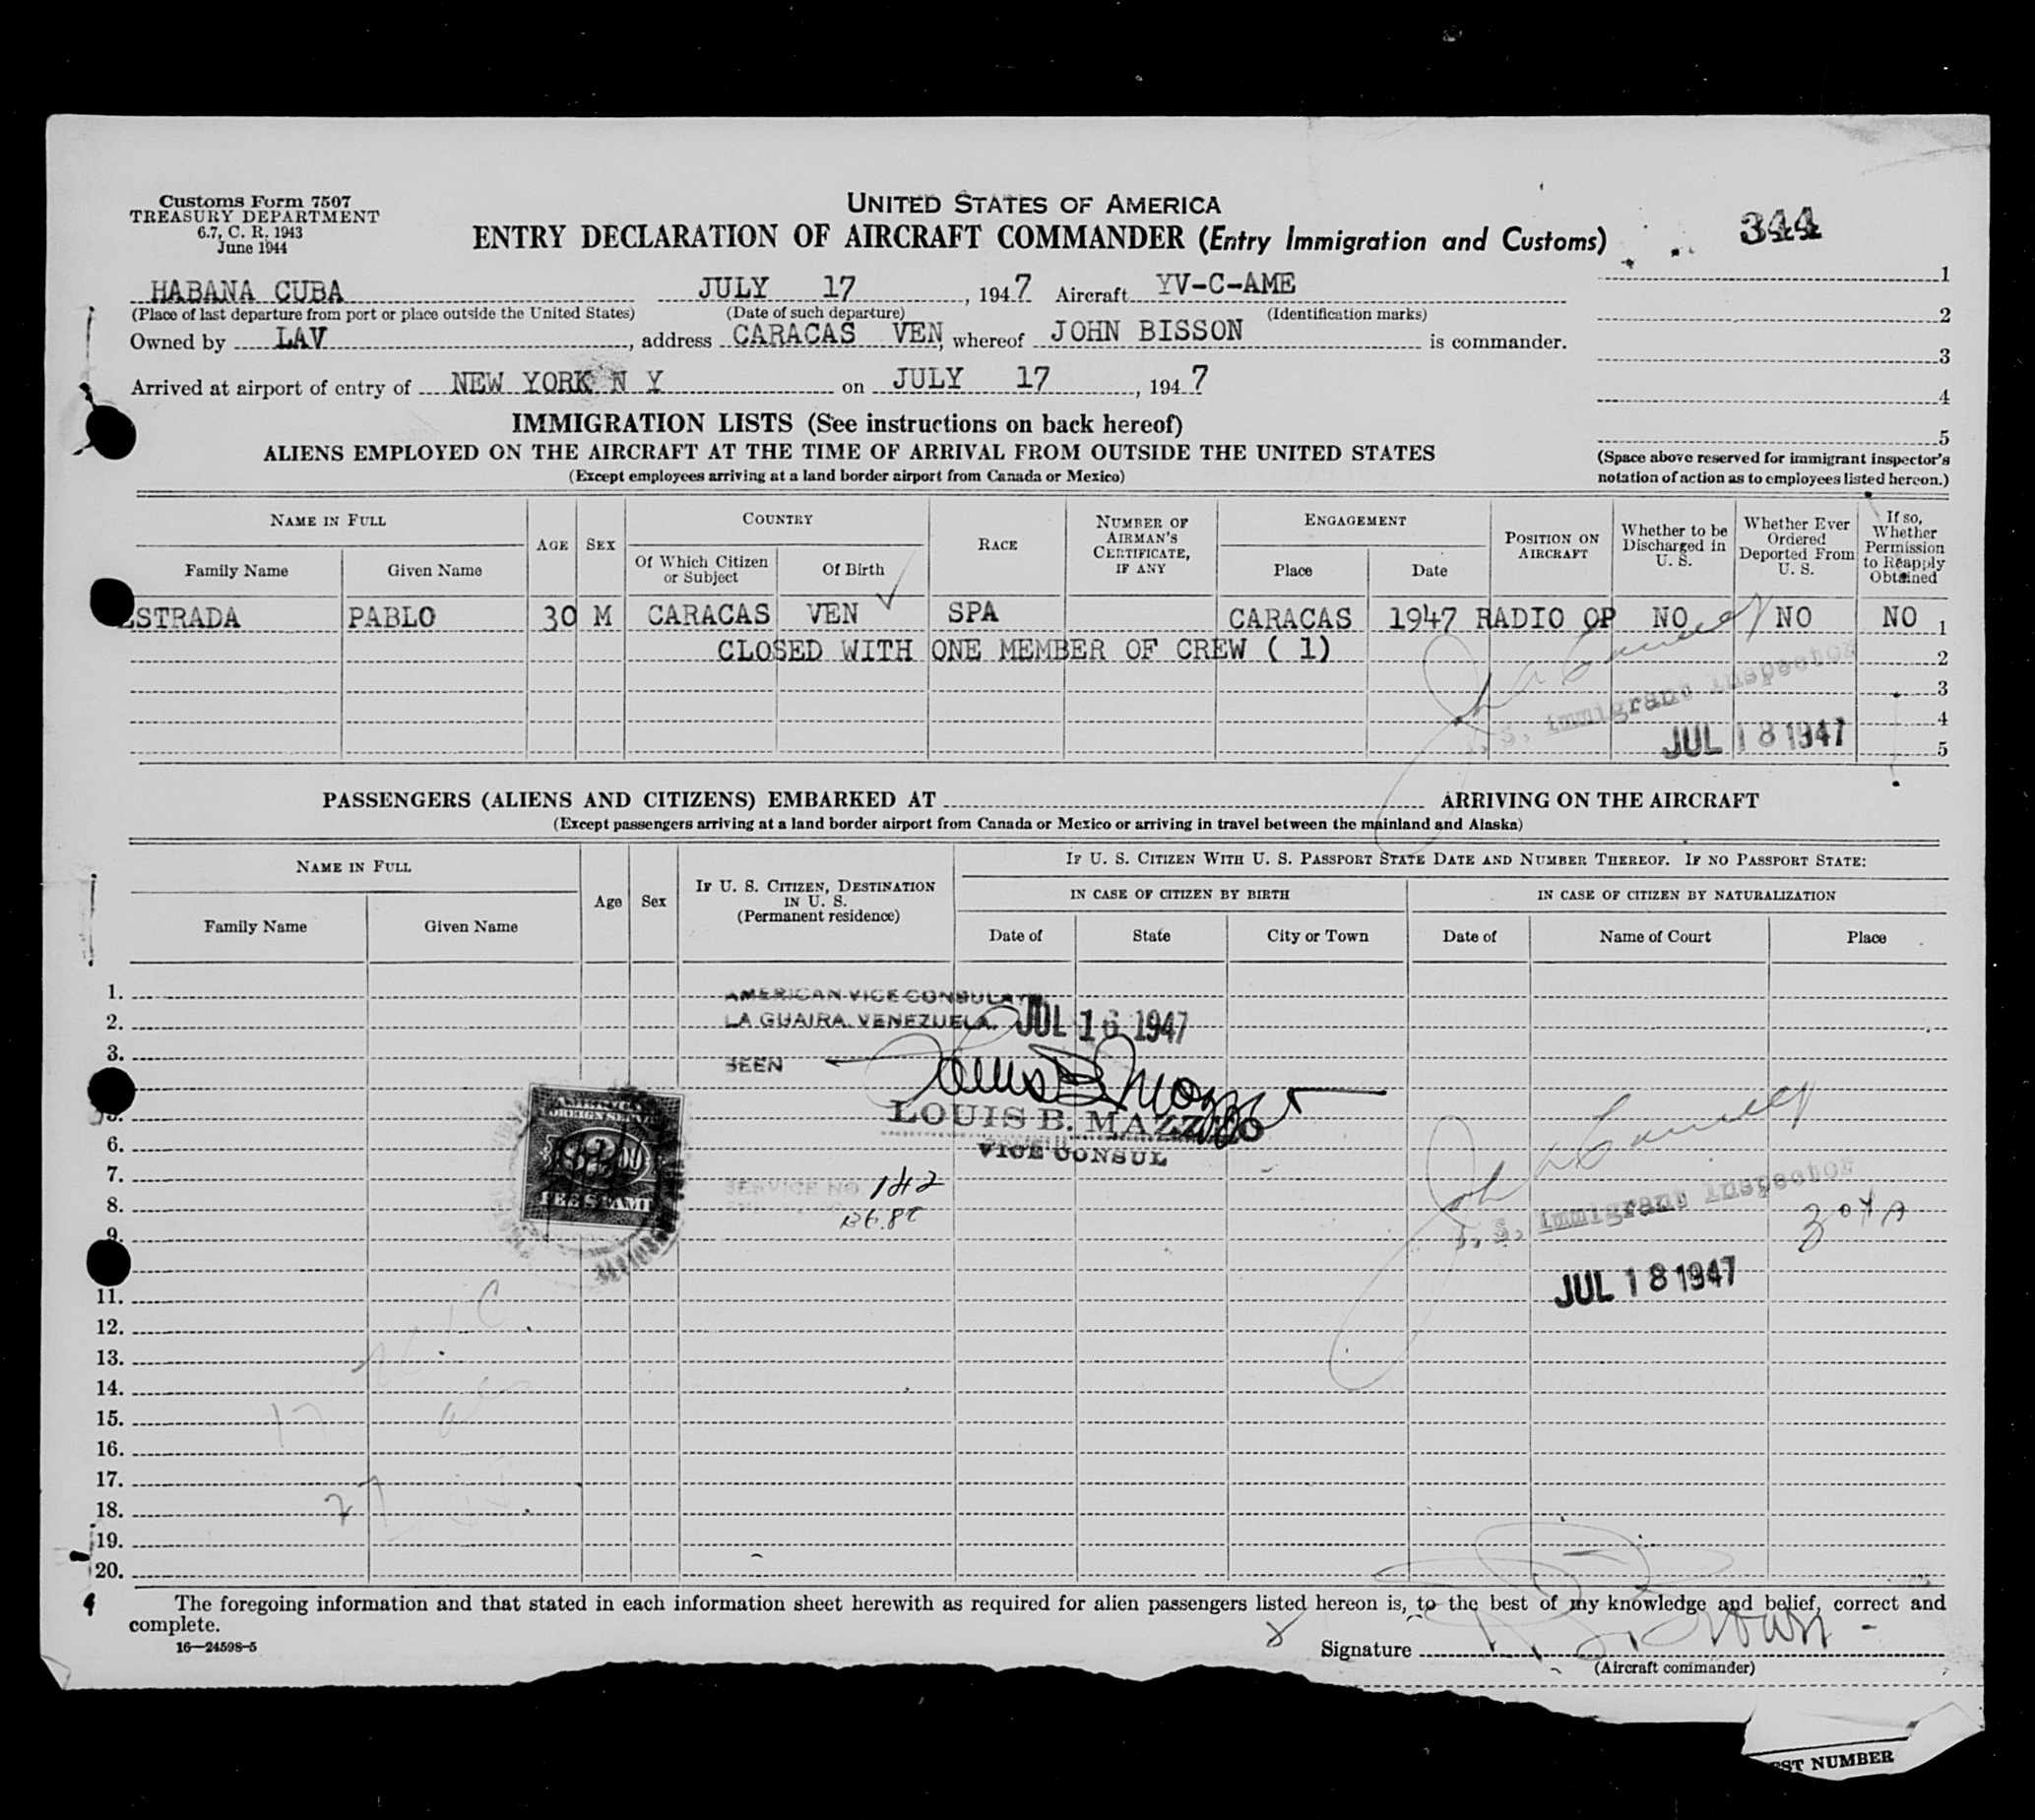 Customs Form 7507
TREASURY DEPARTMENT
6.7, C. R. 1943
June 1944
UNITED STATES OF AMERICA
ENTRY DECLARATION OF AIRCRAFT COMMANDER (Entry Immigration and Customs)
344
HABANA CUBA JULY 17, 1947 Aircraft YV-C-AME
(Place of last departure from port or place outside the United States) (Date of such departure) (Identification marks)
Owned by LAV, address CARACAS VEN, whereof JOHN BISSON is commander.
Arrived at airport of entry of NEW YORK N Y on JULY 17, 1947
1
2
3
4
5
(Space above reserved for immigrant inspector's
notation of action as to employees listed hereon.)
IMMIGRATION LISTS (See instructions on back hereof)
ALIENS EMPLOYED ON THE AIRCRAFT AT THE TIME OF ARRIVAL FROM OUTSIDE THE UNITED STATES
(Except employees arriving at a land border airport from Canada or Mexico)
NAME IN FULL
Family Name Given Name
AGE SEX
COUNTRY
Of Which Citizen or Subject
Of Birth
RACE
NUMBER OF AIRMAN'S CERTIFICATE, IF ANY
ENGAGEMENT
Place Date
POSITION ON AIRCRAFT
Whether to be Discharged in U. S.
Whether Ever Ordered Deported From U. S.
If so, Whether Permission to Reapply Obtained
ESTRADA PABLO 30 M CARACAS VEN SPA CARACAS 1947 RADIO OP NO NO NO 1
CLOSED WITH ONE MEMBER OF CREW ( 1) 2
3
4
5
U. S. Immigrant Inspector
JUL 18 1947
PASSENGERS (ALIENS AND CITIZENS) EMBARKED AT ARRIVING ON THE AIRCRAFT
(Except passengers arriving at a land border airport from Canada or Mexico or arriving in travel between the mainland and Alaska)
NAME IN FULL
Family Name Given Name
Age Sex
IF U. S. CITIZEN, DESTINATION IN U. S.
(Permanent residence)
IF U. S. CITIZEN WITH U. S. PASSPORT STATE DATE AND NUMBER THEREOF. IF NO PASSPORT STATE:
IN CASE OF CITIZEN BY BIRTH IN CASE OF CITIZEN BY NATURALIZATION
Date of State City or Town Date of Name of Court Place
1.
2.
3.
6.
7.
8.
9.
11.
12.
13.
14.
15.
16.
17.
18.
19.
20.
AMERICAN VICE CONSULATE
LA GUAIRA, VENEZUELA. JUL 16 1947
SEEN
LOUIS B. MAZZEO
VICE CONSUL
SERVICE NO. 142
AMERICAN
FOREIGN SERVICE
FEE STAMP
U. S. Immigrant Inspector
JUL 18 1947
The foregoing information and that stated in each information sheet herewith as required for alien passengers listed hereon is, to the best of my knowledge and belief, correct and
complete.
16—24598-5
Signature
(Aircraft commander)
EST NUMBER